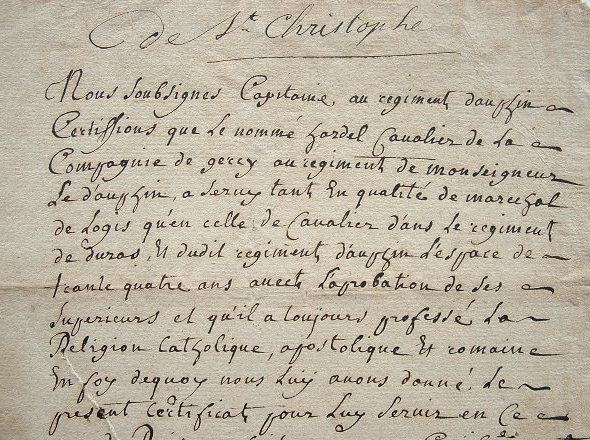 de St. Christophe
Nous Soubsignes Capitaine, au regiment dauphin
Certiffions que Le nommé hardel Cavalier de La
Compagnie de gercy au regiment de monseigneur
Le dauphin, a servy tant En qualité de marechal
de Logis qu'en celle de Cavalier dans Le regiment
de duras, Et dudit regiment dauphin L'espace de
trante quatre ans avech L'aprobation de ses
Superieurs et qu'il a toujours professé La
Religion Catholique, apostolique Et romaine
En foy dequoy nous Luy avons donné, Le
present Certificat pour Luy Servir en Ce